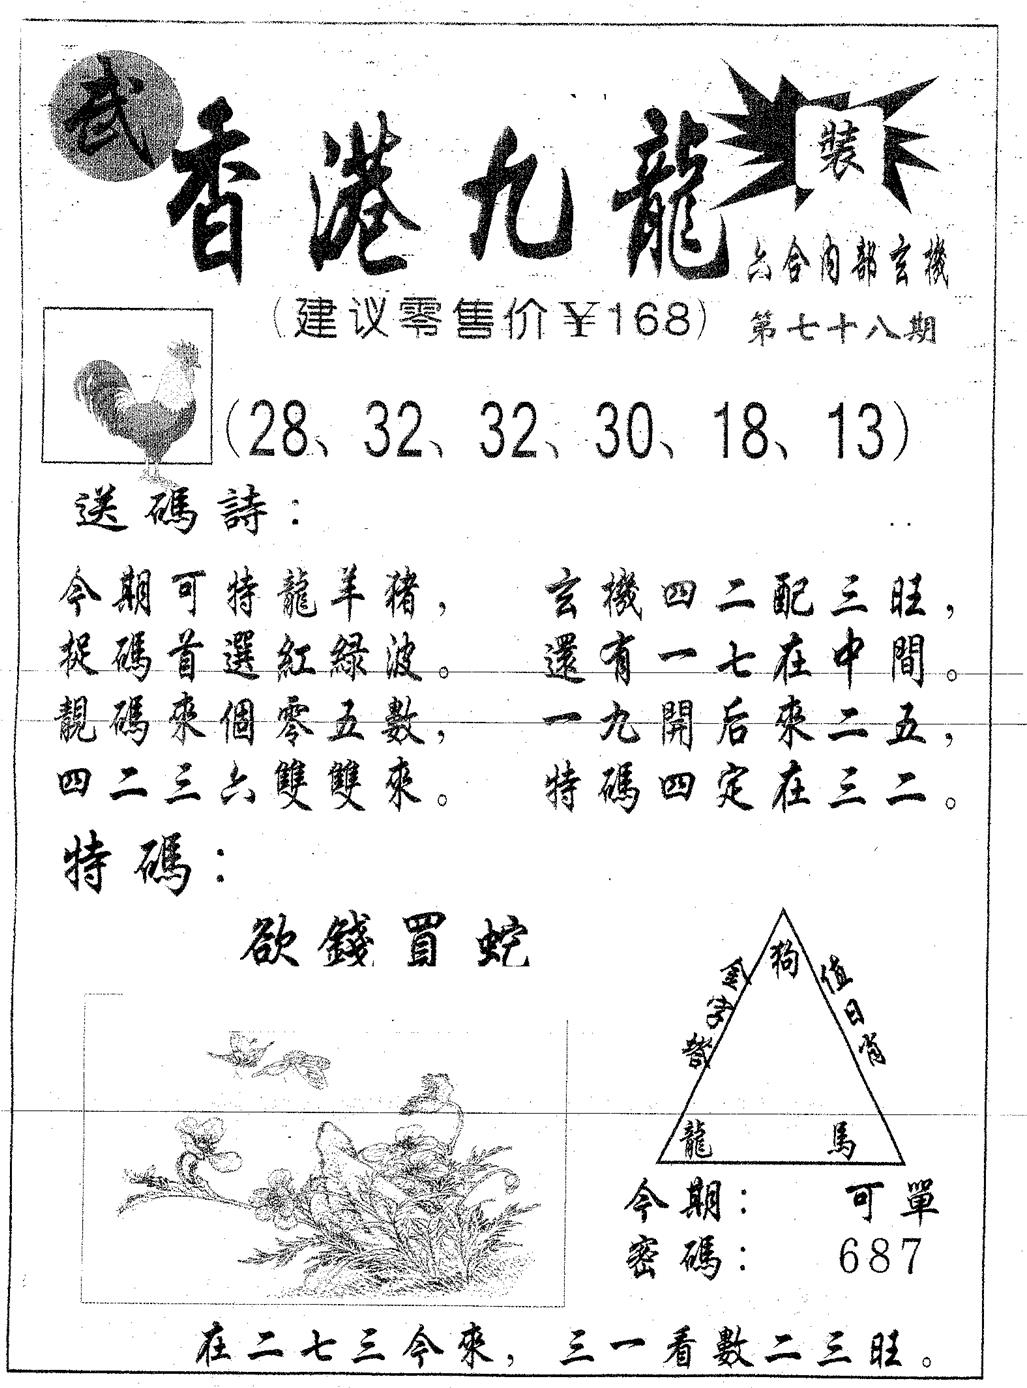 武
香港九龍
裝
六合內部玄機
(建议零售价￥168)
第七十八期
(28、32、32、30、18、13)
送碼詩：
今期可特龍羊猪，
捉碼首選紅綠波。
靚碼來個零五數，
四二三六雙雙來。
玄機四二配三旺，
還有一七在中間。
一九開后來二五，
特碼四定在三二。
特碼：
欲錢買蛇
金字塔
狗
值日肖
龍 馬
今期： 可單
密碼： 687
在二七三今來，三一看數二三旺。